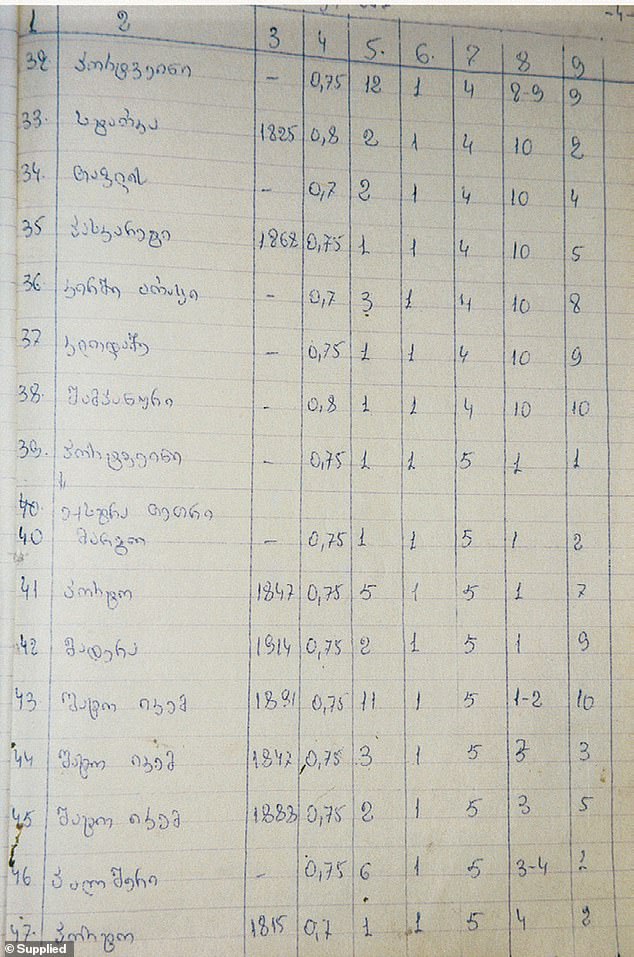 -4-
1 2 3 4 5. 6. 7 8 9
32 პორტვეინი - 0,75 12 1 4 8-9 9
33. სტარკა 1825 0,8 2 1 4 10 2
34. - 0,7 2 1 4 10 4
35 0,75 1 1 4 10 5
36 არაყი - 0,7 3 1 4 10 8
37 - 0,75 1 1 4 10 9
38. შამპანური - 0,8 1 1 4 10 10
39. პორტვეინი - 0,75 1 1 5 1 1
40. ექსტრა თეთრი
40 მარგო - 0,75 1 1 5 1 2
41 პორტო 1847 0,75 5 1 5 1 7
42 მადერა 1914 0,75 2 1 5 1 9
43. შატო იკემ 1891 0,75 11 1 5 1-2 10
44 შატო იკემ 1847 0,75 3 1 5 3 3
45 შატო იკემ 0,75 2 1 5 3 5
46 შერი - 0,75 6 1 5 3-4 2
47. პორტო 1815 0,7 1 1 5 4 2
© Supplied